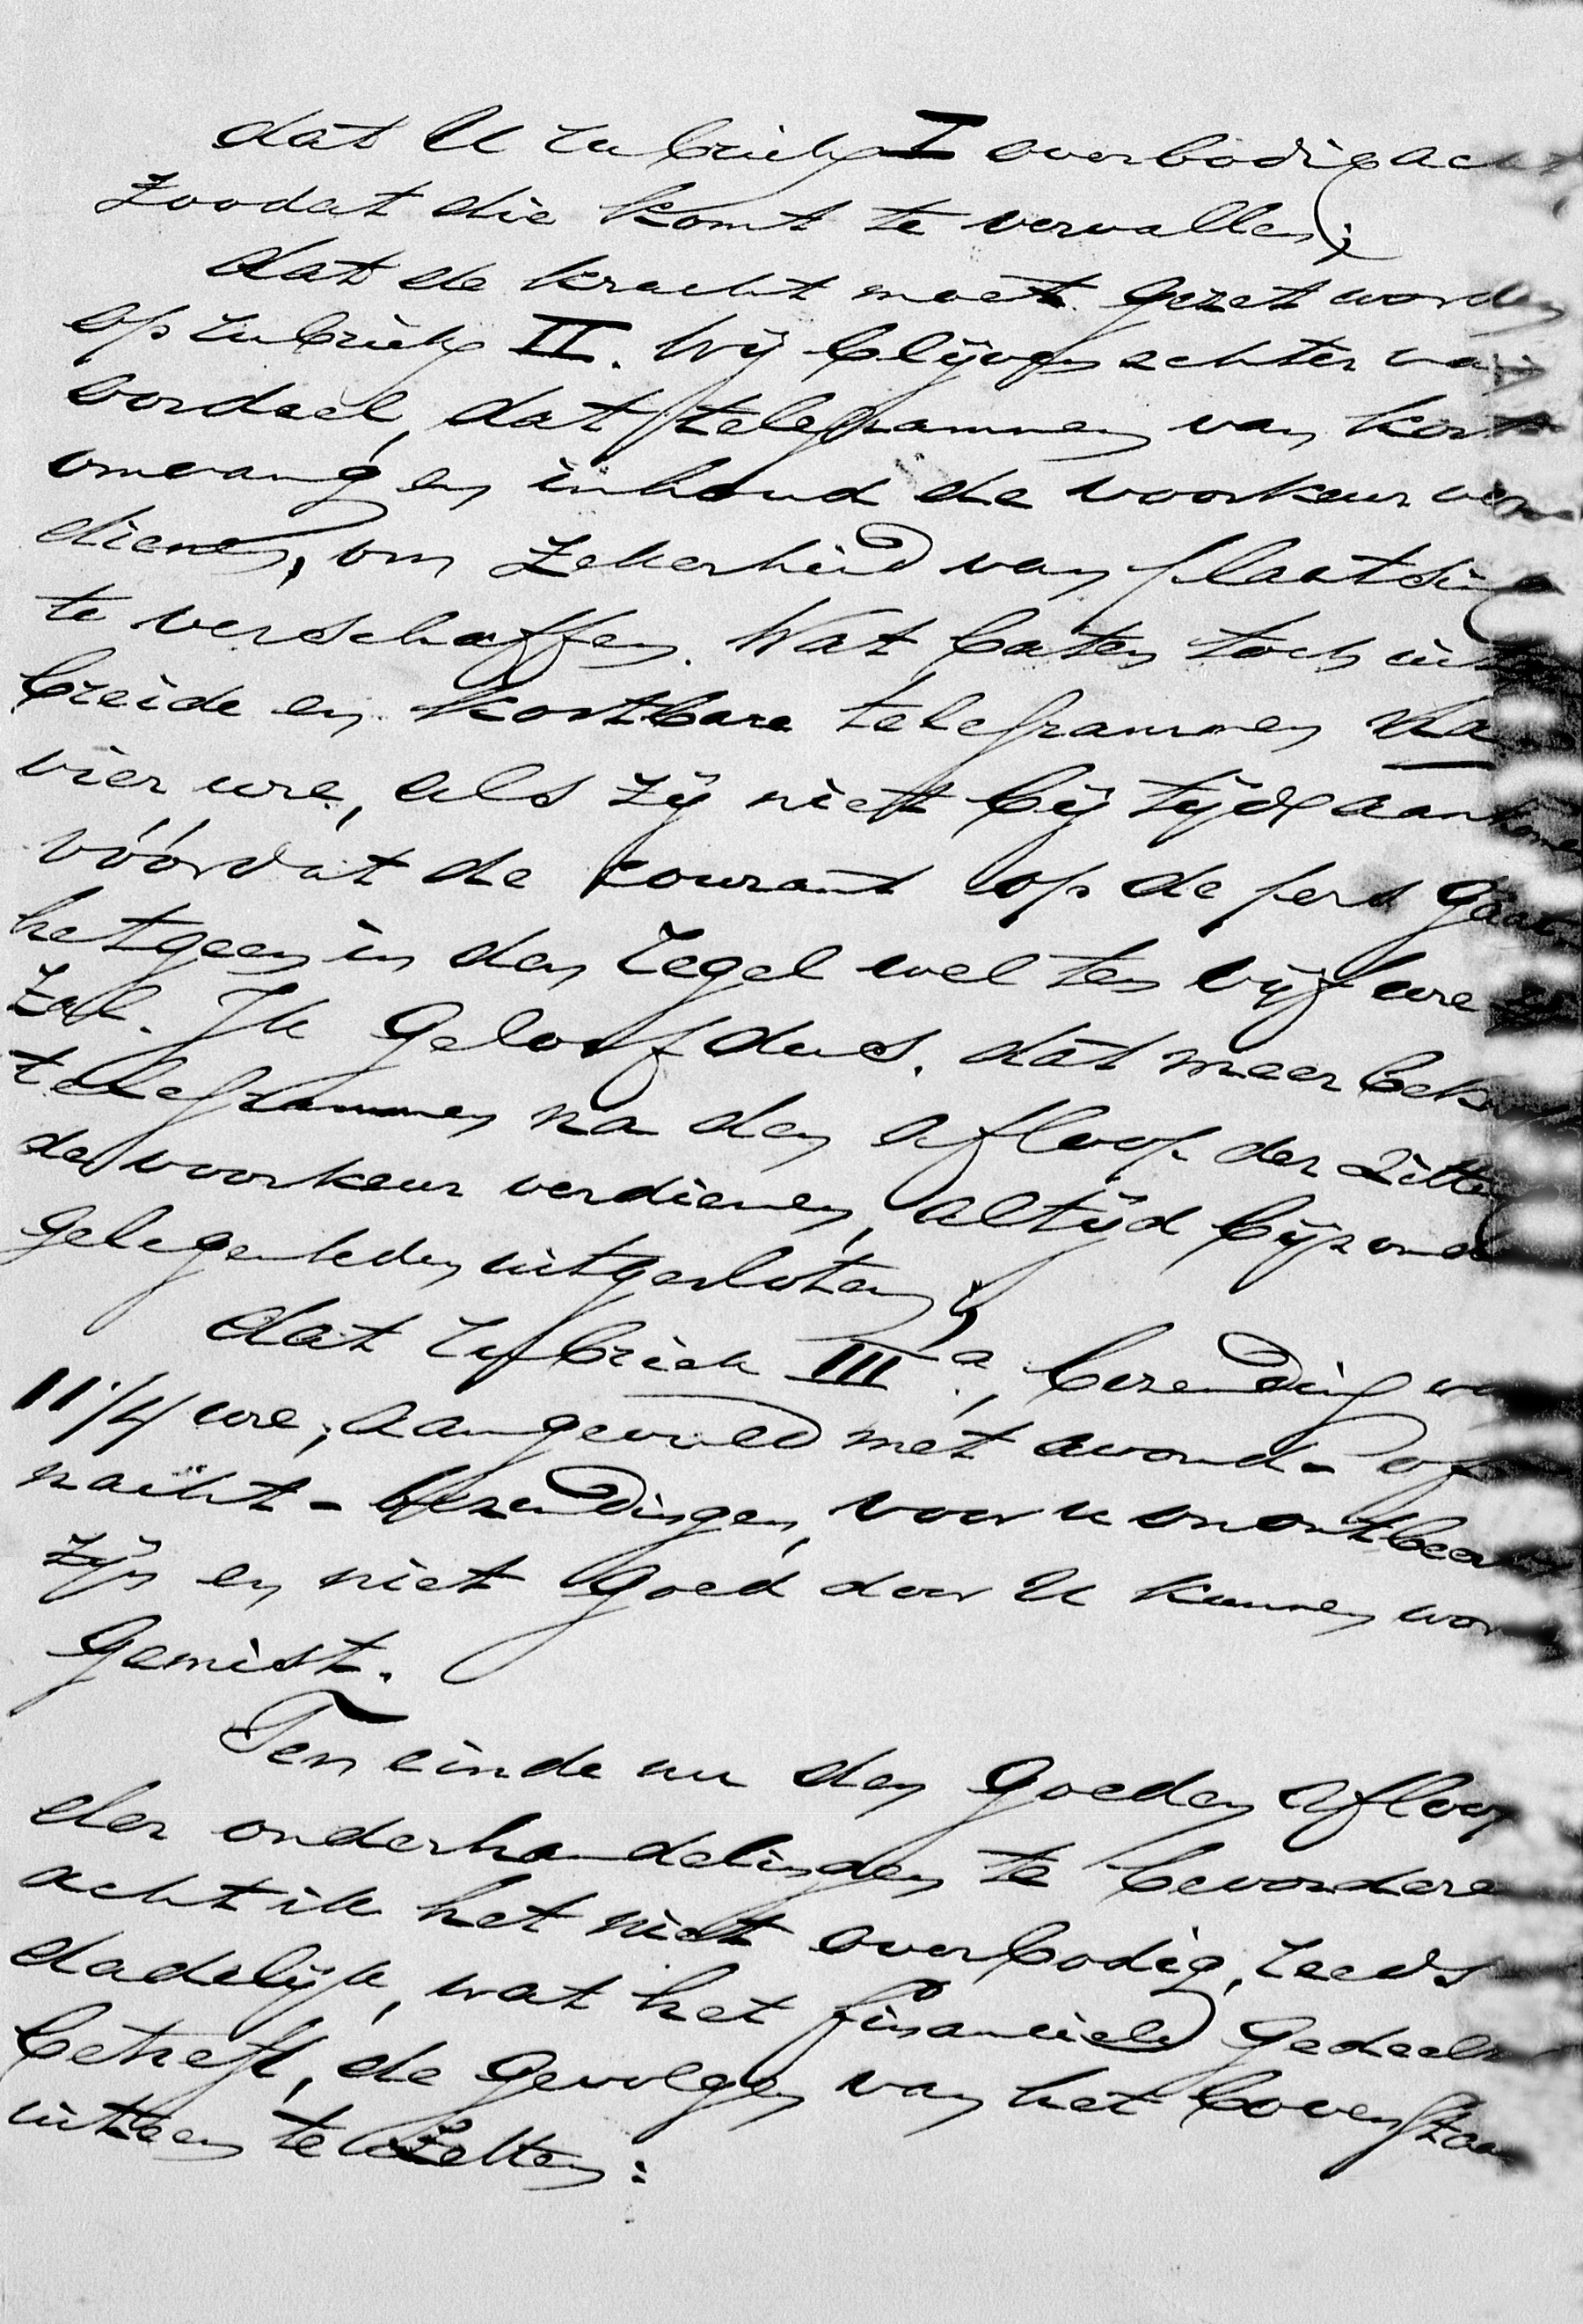 dat U rubriek I overbodig acht
zoodat die komt te vervallen;
dat de kracht moet gezet worden
op rubriek II. Wij blijven echter van
oordeel, dat telegrammen van korten
omvang en inhoud de voorkeur ver-
dienen, om zekerheid van plaatsing
te verschaffen. Wat baten toch uit
breide en kostbare telegrammen na
vier ure, als zij niet bij tijds aankomen
vóórdat de courant op de pers gaat,
hetgeen in den regel wel ten vijf ure
zal. Ik geloof dus, dat meer
telegrammen na den afloop der
de voorkeur verdienen, altijd
gelegenheden uitgesloten;
dat rubriek III a, bezending van
11 1/4 ure, aangevuld met avond- of
nacht-bezendingen, voor u
zijn en niet goed door U kunnen
gemist.
Ten einde nu den goeden afloop
der onderhandelingen te bevorderen
acht ik het niet overbodig, reeds
dadelijk, wat het financieele gedeelte
betreft, de gevolgen van het bovenstaande
uiteen te zetten: